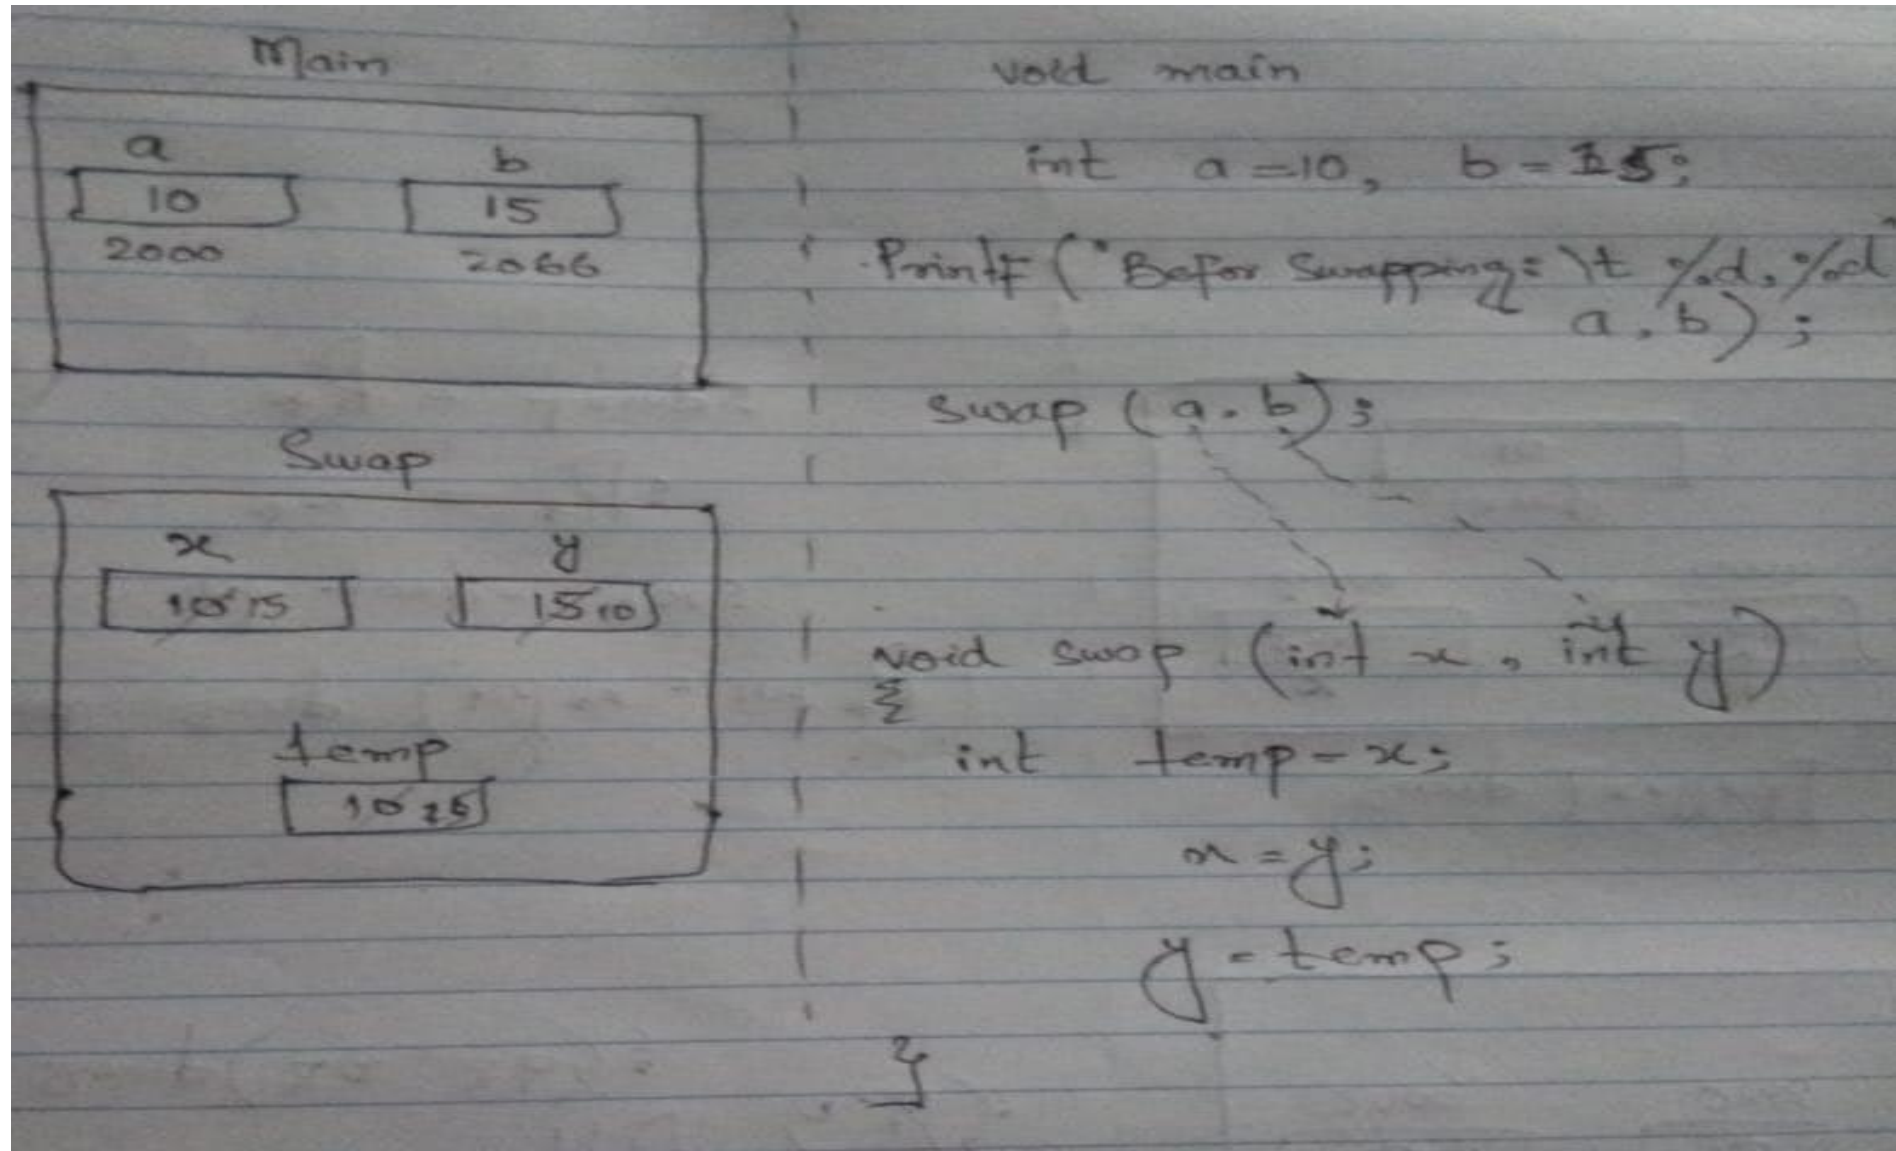 Main
a b
10 15
2000 2066
Swap
x y
10 15 15 10
temp
10 15
void main
int a = 10, b = 15;
Printf ("Befor Swapping: \t %d, %d"
a, b);
swap (a, b);
void swap (int x, int y)
{
int temp = x;
x = y;
y = temp;
}